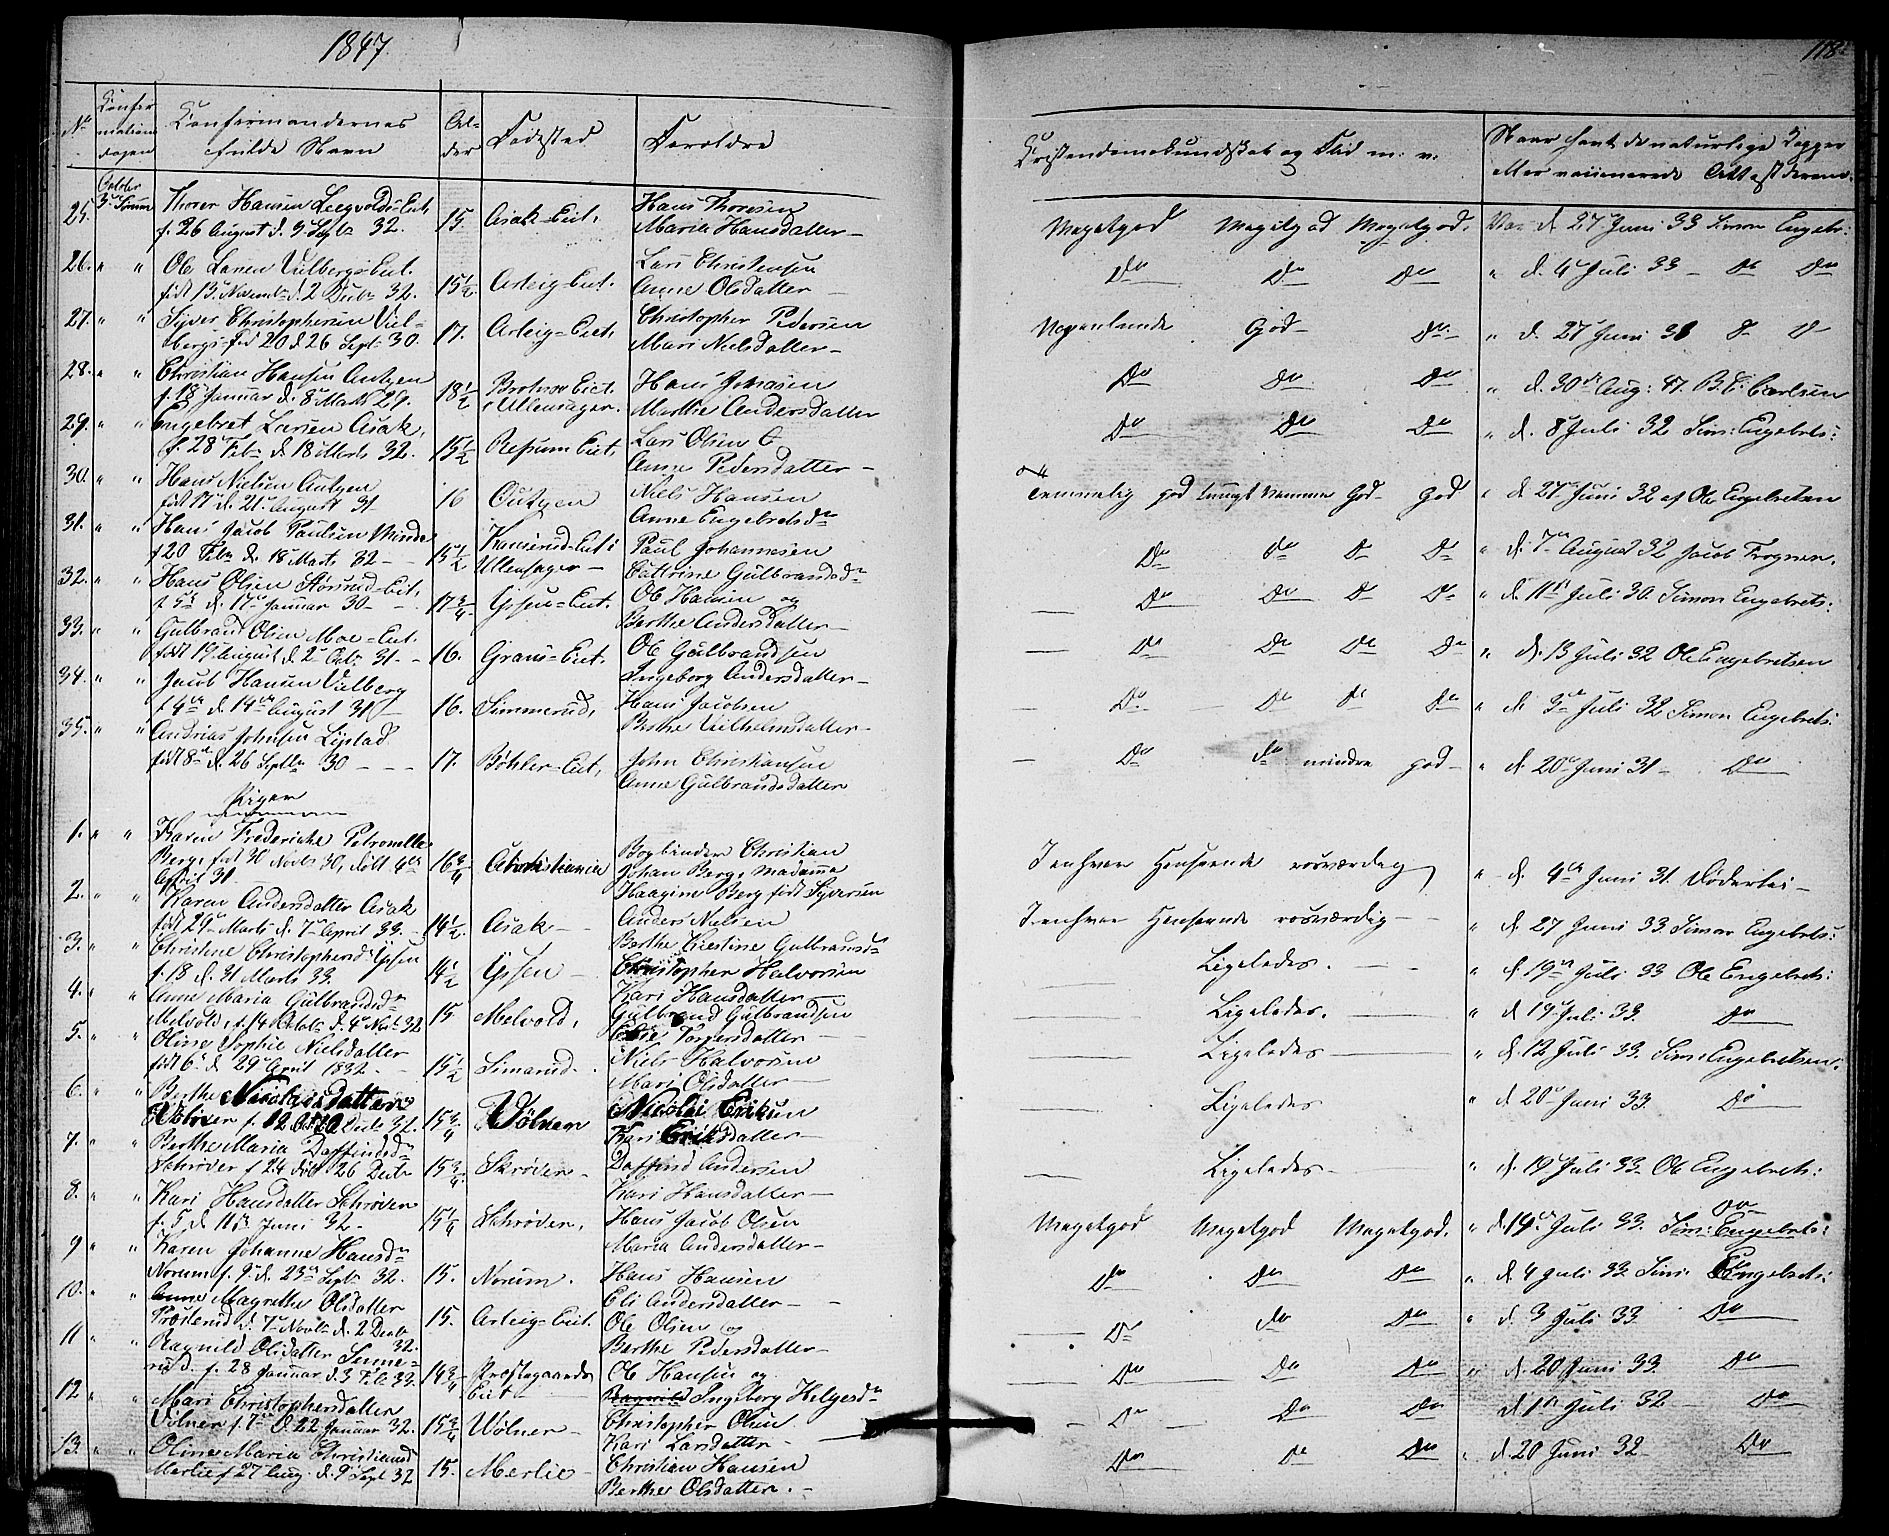 1847.
118.
No
Konfirmationsdagen
Konfirmandernes fulde Navn
Alder
Fødested
Forældre
Kristendomskundskab og Flid m: v:
Naar havt de naturlige Kopper eller vaccinerede Attest derom.
October 3die Sørum
25. Thorer Hansen Eiet, f. 26 August d. 9 Septb 32. 15. Asak-Eiet, Hans Thoresen Maria Hansdatter — Megetgod Megetgod Megetgod. Vac d. 27 Juni 33 Simon Engebr:
26. " " Ole Larsen Vilbergs Eiet. født 13 Novemb d. 2 Decbr 32. 15½ Arteig-Eiet. Lars Christensen Anne Olsdatter — Do Do Do " d. 4 Juli 33 — Do Do
27. " " Syver Christophersen Vilbergs- fød 20 d. 26 Sept 30. 17. Arteig-Eiet. Christopher Pedersen Mari Nielsdatter — God — Do " d. 27 Juni 31
28. " " Christian Hansen f. 18 Januar d. 8 Marts 29. 18½ Eiet. Ullensager. Hans Johnsen Marthe Andersdatter Do Do Do " d. 30te Aug: 47. Carlsen
29. " " Engebret Larsen Asak, f. 28 Feb d. 18 Marts 32. 15½ Refsum Eiet, Lars Olsen Anne Pedersdatter — Do Do Do " d. 8 Juli 32 Sim: Engebrets:
30. " " Hans Nielsen født 11 d. 21 August 31 16 Niels Hansen Anne Engebretsdr temmelig god God God " d. 27 Juni 32 af Ole Engebretsen
31. " " Hans Jacob Paulsen Minde f 20 Feb d. 18 Marts 32 — 15½ Eiet i Ullensager — Paul Johannesen Cathrine Gulbrandsdr Do do Do Do " d. 7 August 32 Jacob Frogner.
32. " " Hans Olsen Eiet, f 5 d. 17 Januar 30 — 17¾ Ipsen-Eiet. Ole Hansen og Berthe Andersdatter — Do Do Do Do " d. 11 Juli 30. Simon Engebrets:
33. " " Gulbrand Olsen Moe-Eiet. født 19. August d. 2 Octb 31 — 16. Eiet. Ole Gulbrandsen Ingeborg Andersdatter — Do Do Do Do " d. 13 Juli 32 Ole Engebretsen
34. " " Jacob Hansen Vilberg f 4de d. 14de August 31 16. Simmerud, Hans Jacobsen Berthe Vilhelmsdatter — Do Do Do Do " d. 3de Juli 32 Simon Engebrets:
35. " " Andreas Johnsen født 8de d. 26 Septbr 30 — — 17. Bøhler-Eiet, John Christiansen Anne Gulbrandsdatter Do do mindre god — " d. 20 Juni 31 — Do
Piger
1. " " Karen Frederiche Petronelle Berg, fød 30 Novbr 30, døbt 4de April 31 16¾ Christiania Bogbinder Christian Johan Berg, Madamme Berg født Syversen I enhver Henseende roesværdig " d. 4de Juni 31.
2. " Karen Andersdatter Asak født 29 Marts d. 7 April 33. 14½ Asak — Anders Nielsen Berthe Kirstine Gulbrandsdr I enhver Henseende roesværdig — " d. 27 Juni 33. Simon Engebrets:
3. " " Christine Christophersd: Ipsen f. 18 d. 31 Marts 33. 14½ Ipsen — Christopher Halvorsen Kari Hansdatter — Ligeledes. " d. 19 Juli 33 Ole Engebrets:
4. " " Anne Maria Gulbrandsdr Melvold, f. 14 Octob d. 4 Novb 32 15 Melvold, Gulbrand Gulbrandsen Ligeledes. " d. 19 Juli 33. Do
5. " " Oline Sophie Nielsdatter født 6 d. 29 April 1832 — 15½ Simarud. Niels Halvorsen Mari Olsdatter — Ligeledes — " d. 12 Juli 33. Sim: Engebretsen.
6. " " Berthe Nicolaisdatter Vølner f. 15¾ Vølner Nicolai Eriksen Kari Eriksdatter — Ligeledes " d. 20 Juni 33. Do
7. " " Berthe Maria Daffindsd: Schrøder f 24 26 Decbr 15¾ Skrøder — Daffind Andersen Kari Hansdatter — Ligeledes — " d. 19 Juli 33. Ole Engebrets:
8. " " Kari Hansdatter Schrøder f. 5 d. 11 Juni 32 — 15¼ Schrøder, Hans Jacob Olsen Maria Andersdatter — Megetgod Megetgod Megetgod. " d. 19 Juli 33. Sim: Engebrets:
9 " " Karen Johanne Hansdr Norum f. 9 d. 23 Septb 32. 15. Norum. Hans Hansen Eli Andersdatter — Do Do Do " d. 4 Juli 33 Sim: Engebrets:
10. " " Anne Magrethe Olsdatter d. 7 Novbr d. 2 Decbr 32. 15. Arteig-Eiet. Ole Olsen og Berthe Pedersdatter — Do do Do " d. 3 Juli 33 Do
11 " " Ragnild Olsdatter f. 28 Januar d. 3 Feb 33. 14¾ Præstegaards Eiet — Ole Hansen og Ingeborg Helgesdr Do Do Do " d. 20 Juni 33 Do
12. " " Mari Christophersdatter Vølner f. 7 d. 22 Januar 32. 15¾ Vølner — Christopher Olsen Kari Larsdatter — Do Do Do d 1 Juli 32 — Do
13. " " Oline Maria Christiansd Merlie f 27 Aug. d. 9 Sept 32 15. Merlie — Christian Hansen Berthe Olsdatter. — Do do Do " d. 20 Juni 32 Do